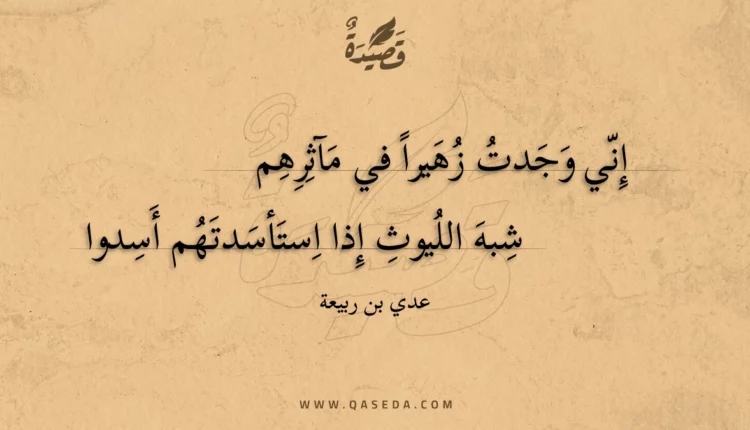 قَصِيدَةٌ
إِنّي وَجَدتُ زُهَيراً في مَآثِرِهِم
شِبهَ اللُيوثِ إِذا اِستَأسَدتَهُم أَسِدوا
عدي بن ربيعة
WWW.QASEDA.COM